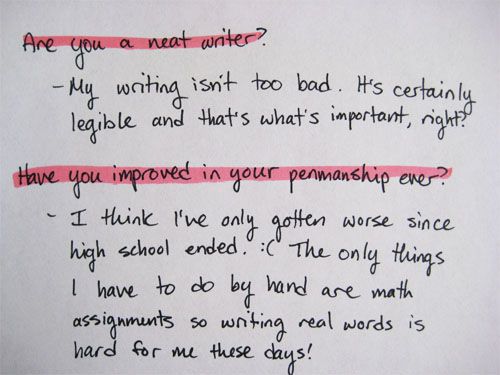 Are you a neat writer?
- My writing isn't too bad. It's certainly
legible and that's what's important, right?
Have you improved in your penmanship ever?
- I think I've only gotten worse since
high school ended. :( The only things
I have to do by hand are math
assignments so writing real words is
hard for me these days!